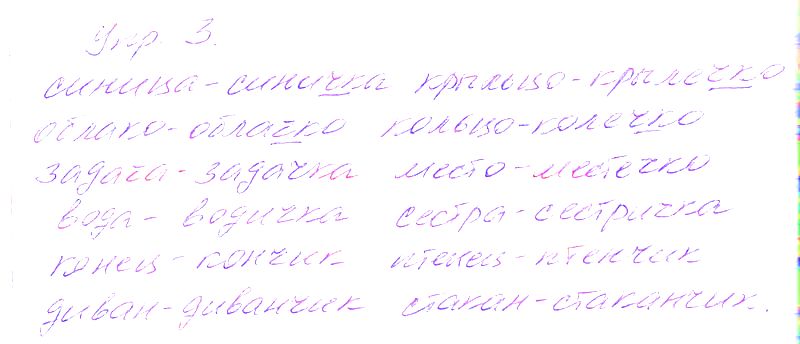 Упр. 3.
синица - синичка крыльцо - крылечко
облако - облачко кольцо - колечко
задача - задачка место - местечко
вода - водичка сестра - сестричка
конец - кончик птенец - птенчик
диван - диванчик стакан - стаканчик.